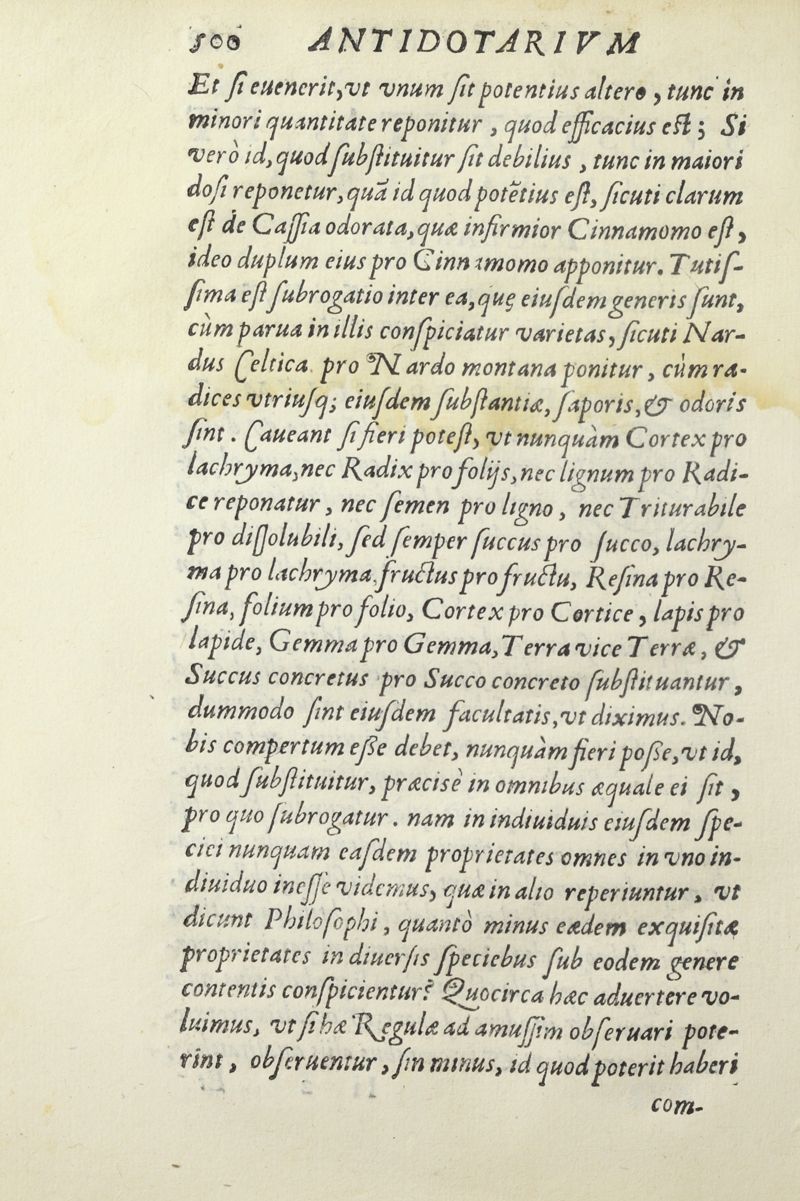 500 ANTIDOTARIVM
Et ſi euenerit,vt vnum ſit potentius altero, tunc in
minori quantitate reponitur, quod efficacius eſt; Si
verò id, quod ſubſtituitur ſit debilius, tunc in maiori
doſi reponetur, quā id quod potētius eſt, ſicuti clarum
eſt de Caſſia odorata, quæ infirmior Cinnamomo eſt,
ideo duplum eius pro Cinnamomo apponitur. Tutiſ-
ſima eſt ſubrogatio inter ea, quę eiuſdem generis ſunt,
cùm parua in illis conſpiciatur varietas, ſicuti Nar-
dus Celtica pro Nardo montana ponitur, cùm ra-
dices vtriuſq; eiuſdem ſubſtantiæ, ſaporis, & odoris
ſint. Caueant ſi fieri poteſt, vt nunquàm Cortex pro
lachryma, nec Radix pro folijs, nec lignum pro Radi-
ce reponatur, nec ſemen pro ligno, nec Triturabile
pro diſſolubili, ſed ſemper ſuccus pro ſucco, lachry-
ma pro lachryma, fructus pro fructu, Reſina pro Re-
ſina, folium pro folio, Cortex pro Cortice, lapis pro
lapide, Gemma pro Gemma, Terra vice Terræ, &
Succus concretus pro Succo concreto ſubſtituantur,
dummodo ſint eiuſdem facultatis, vt diximus. No-
bis compertum eſſe debet, nunquàm fieri poſſe, vt id,
quod ſubſtituitur, præcisè in omnibus æquale ei ſit,
pro quo ſubrogatur. nam in indiuiduis eiuſdem ſpe-
ciei nunquam eaſdem proprietates omnes in vno in-
diuiduo ineſſe videmus, quæ in alio reperiuntur, vt
dicunt Philoſophi, quantò minus eædem exquiſitæ
proprietates in diuerſis ſpeciebus ſub eodem genere
contentis conſpicientur? Quocirca hæc aduertere vo-
luimus, vt ſi hæ Regulæ ad amuſſim obſeruari pote-
rint, obſeruentur, ſin minus, id quod poterit haberi
com-